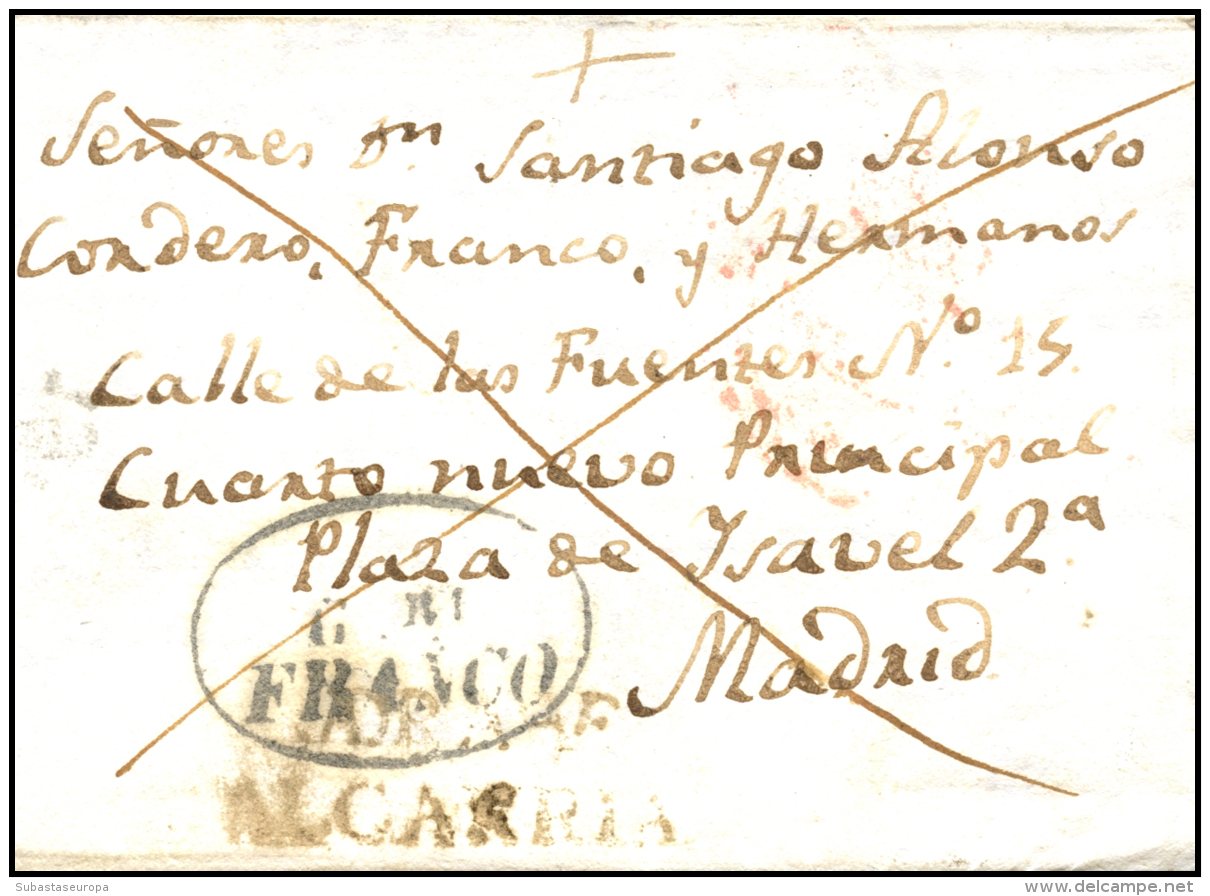 Señores Dn Santiago Alonso
Cordero, Franco, y Hermanos
Calle de las Fuentes Nº 15.
Cuarto nuevo Principal
Plaza de Ysavel 2ª
Madrid
FRANCO
ALCARRIA
Subastaseuropa
www.delcampe.net